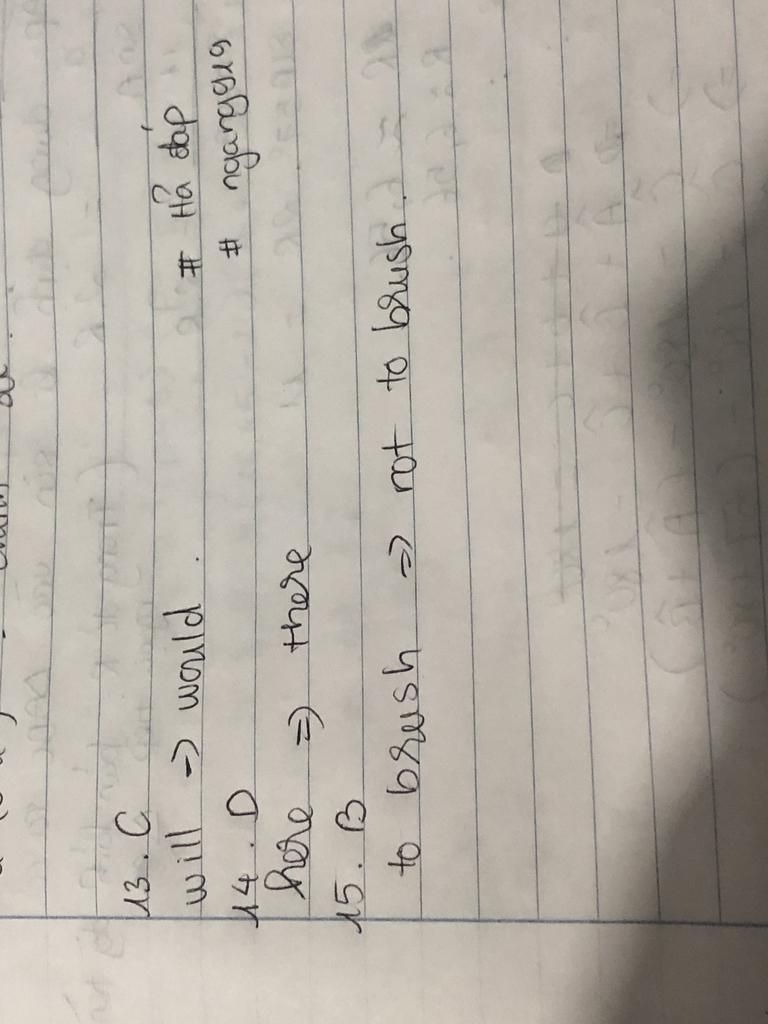 13. C
will -> would. # Hả đáp
14. D # ngangq19
here => there
15. B
to brush => not to brush.